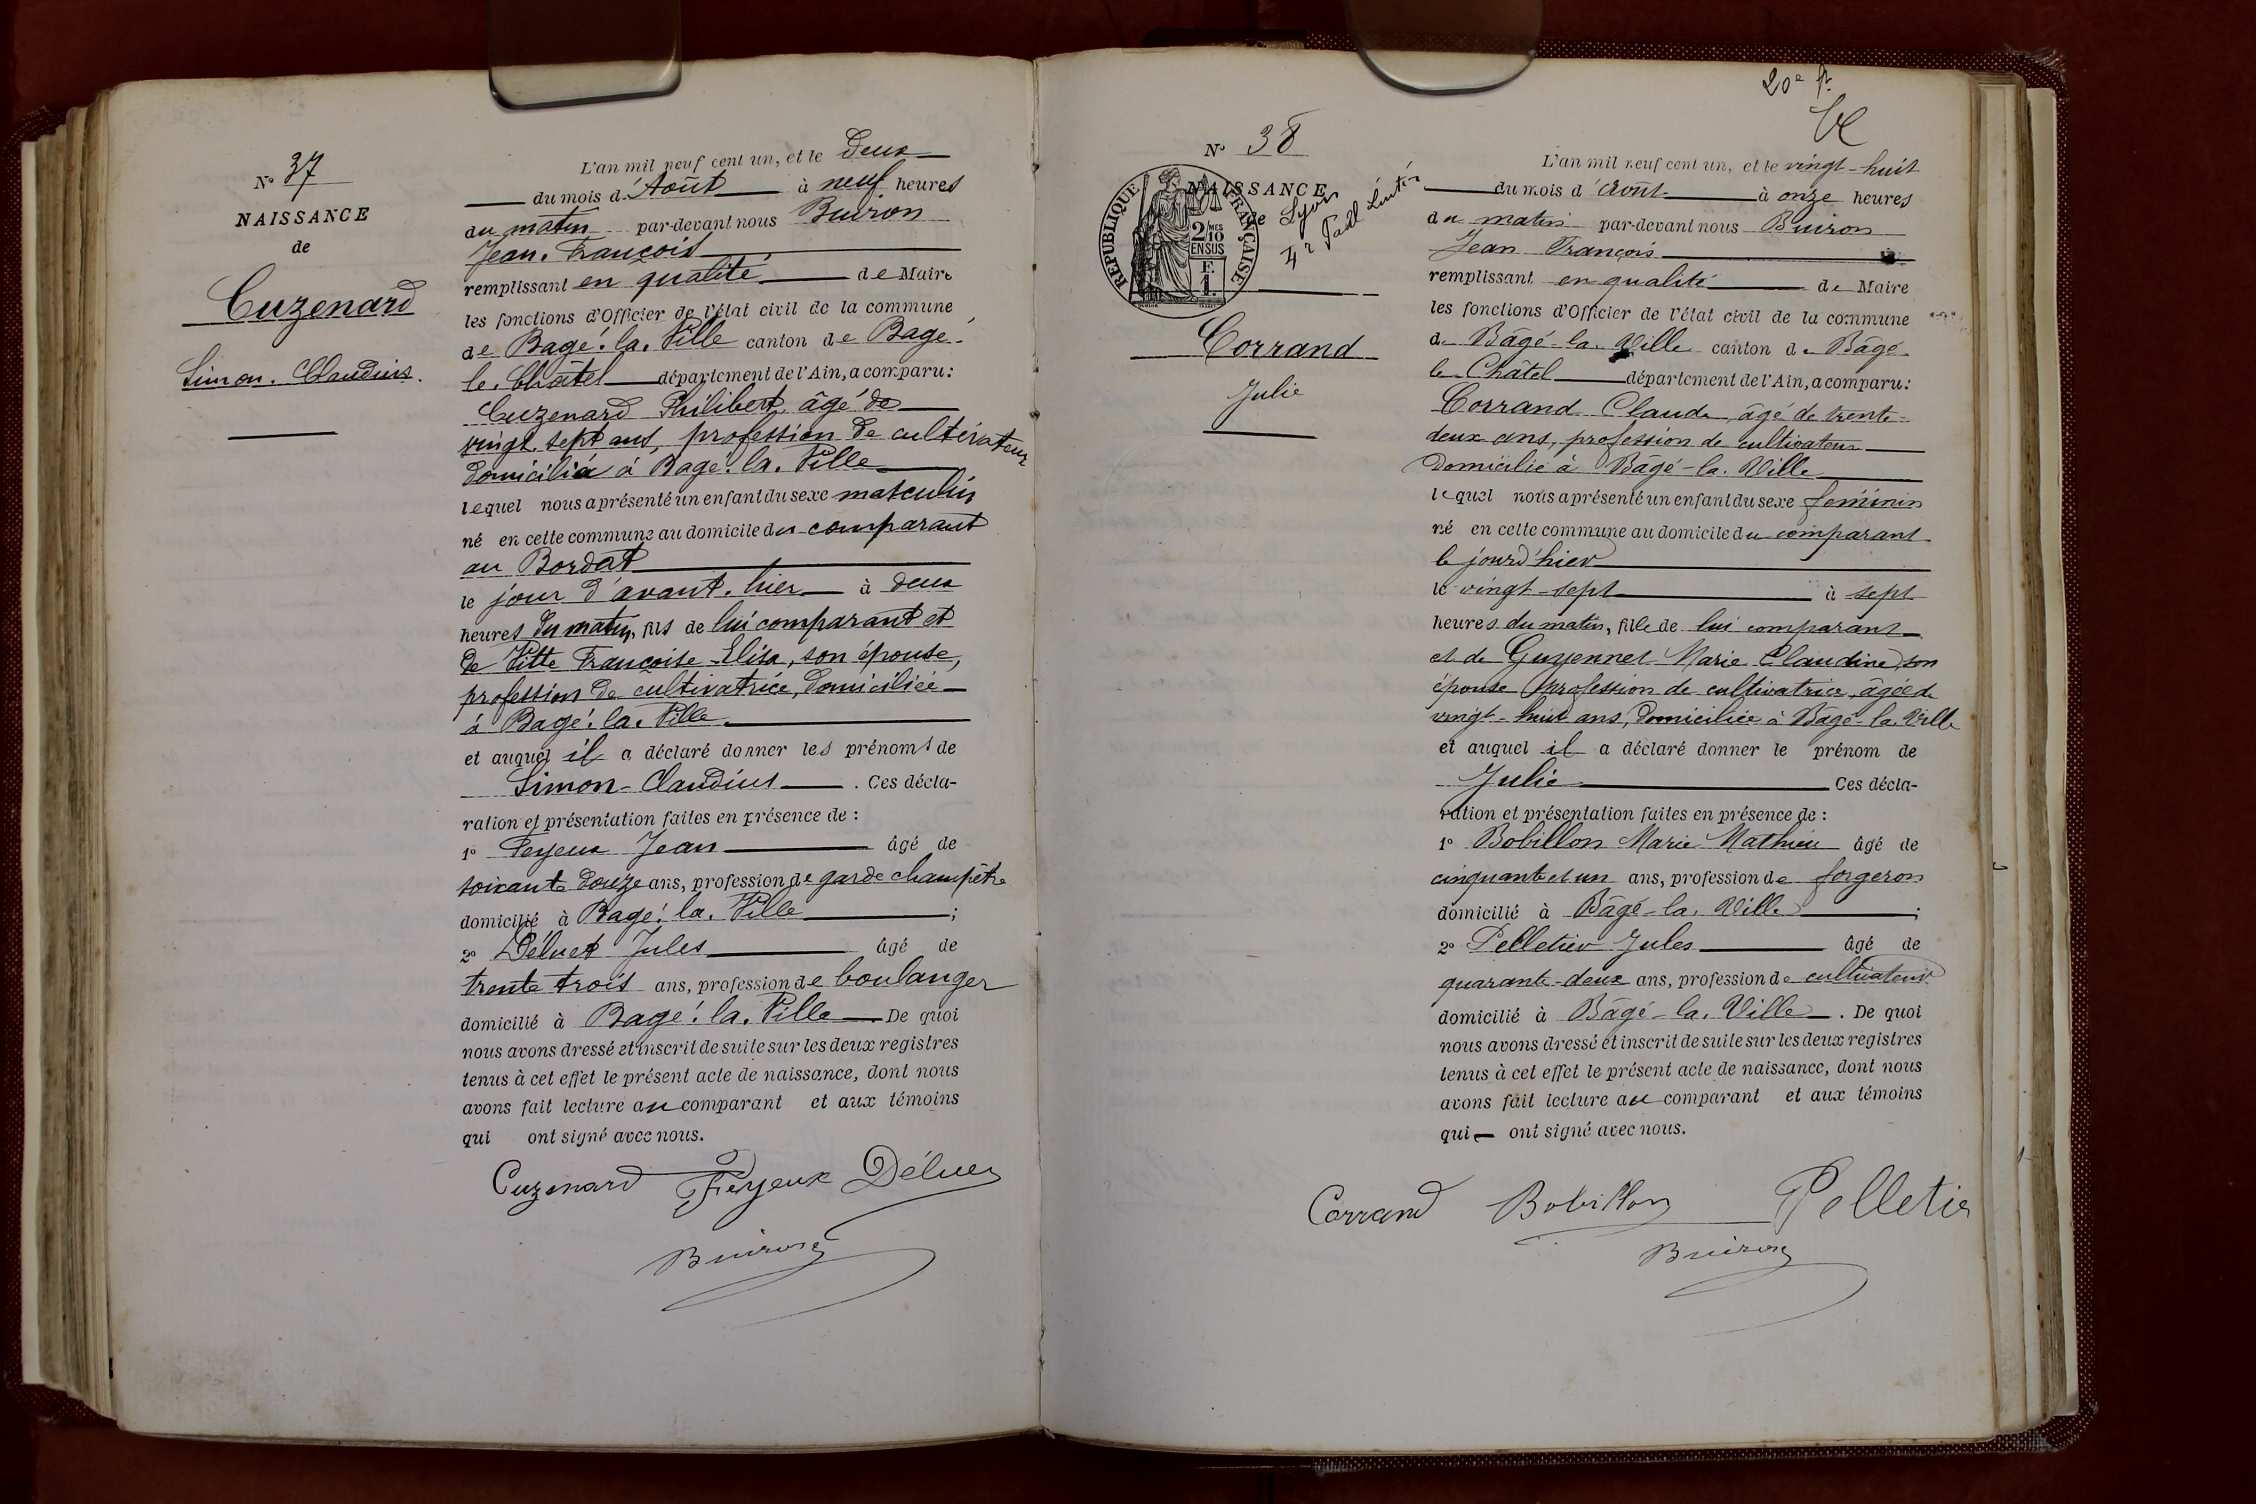 N° 37
NAISSANCE
de
Cuzenard
Simon. Claudius.
L'an mil neuf cent un, et le deux
du mois d'Août à neuf heures
du matin par-devant nous Buiron
Jean. François
remplissant en qualité de Maire
les fonctions d'Officier de l'état civil de la commune
de Bagé. la. Ville canton de Bagé.
le. Châtel département de l'Ain, a comparu:
Cuzenard Philibert âgé de
vingt. sept ans, profession de cultivateur
domicilié à Bagé. la. Ville
lequel nous a présenté un enfant du sexe masculin
né en cette commune au domicile du comparant
au Bordat
le jour d'avant. hier à deux
heures du matin, fils de lui comparant et
de Vitte Françoise Elisa, son épouse,
profession de cultivatrice, domiciliée
à Bagé. la. Ville.
et auquel il a déclaré donner les prénoms de
Simon-Claudius. Ces décla-
ration et présentation faites en présence de :
1° Feyeux Jean âgé de
soixante douze ans, profession de garde champêtre
domicilié à Bagé. la. Ville ;
2° Déluet Jules âgé de
trente trois ans, profession de boulanger
domicilié à Bagé. la. Ville. De quoi
nous avons dressé et inscrit de suite sur les deux registres
tenus à cet effet le présent acte de naissance, dont nous
avons fait lecture au comparant et aux témoins
qui ont signé avec nous.
Cuzenard Feyeux Déluet
Buiron
20e
N° 38
NAISSANCE
de Lyon
RÉPUBLIQUE FRANÇAISE
2/10 MES
EN SUS
F.
1.
Corrand
Julie
L'an mil neuf cent un, et le vingt-huit
du mois d'août à onze heures
du matin par-devant nous Buiron
Jean François
remplissant en qualité de Maire
les fonctions d'Officier de l'état civil de la commune
de Bâgé-la. Ville canton de Bâgé-
le Châtel département de l'Ain, a comparu:
Corrand Claude, âgé de trente-
deux ans, profession de cultivateur
domicilié à Bâgé-la. Ville
lequel nous a présenté un enfant du sexe féminin
né en cette commune au domicile du comparant
le jour d'hier
le vingt-sept à sept
heures du matin, fille de lui comparant
et de Guyennet Marie Claudine, son
épouse profession de cultivatrice, âgée de
vingt-huit ans, domiciliée à Bâgé-la. Ville
et auquel il a déclaré donner le prénom de
Julie Ces décla-
ration et présentation faites en présence de :
1° Bobillon Marie Mathieu âgé de
cinquante et un ans, profession de forgeron
domicilié à Bâgé-la. Ville ;
2° Pelletier Jules âgé de
quarante-deux ans, profession de cultivateur
domicilié à Bâgé-la. Ville. De quoi
nous avons dressé et inscrit de suite sur les deux registres
tenus à cet effet le présent acte de naissance, dont nous
avons fait lecture au comparant et aux témoins
qui ont signé avec nous.
Corrand Bobillon Pelletier
Buiron